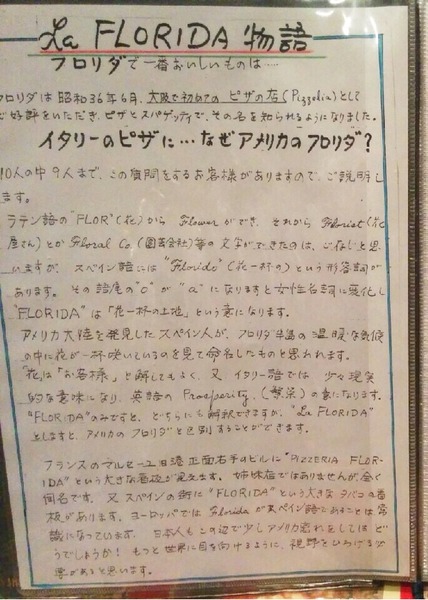 La FLORIDA 物語
フロリダで一番おいしいものは…
フロリダは昭和36年6月、大阪で初めてのピザの店(Pizzelia)として
ご好評をいただき、ピザとスパゲッティで、その名を知られるようになりました。
イタリーのピザに…なぜアメリカのフロリダ?
10人の中9人まで、この質問をするお客様がありますので、ご説明し
ます。
ラテン語の"FLOR"(花)から Flowerができ、それから Florist(花
屋さん)とか Floral Co(園芸会社)等の文字ができたのは、ご存じと思
いますが、スペイン語には"Florido"(花一杯の)という形容詞が
あります。その語尾の"o"が"a"になりますと女性名詞に変化し
"FLORIDA"は「花一杯の土地」という意になります。
アメリカ大陸を発見したスペイン人が、フロリダ半島の温暖な気候
の中に花が一杯咲いているのを見て命名したものと思われます。
「花」は「お客様」と解してもよく、又イタリー語では 少々現実
的な意味になり、英語の Prosperity.(繁栄)の意になります。
"FLORIDA"のみですと、どちらにも解釈できますが、"La FLORIDA"
としますと、アメリカのフロリダと区別することができます。
フランスのマルセーユ旧港正面右手のビルに"PIZZERIA FLOR-
IDA"という大きな看板が見えます。姉妹店ではありませんが、全く
同名です。又スペインの街に"FLORIDA"という大きなタバコの看
板があります。ヨーロッパでは Floridaがスペイン語であることは常
識になっています。日本人もこの辺で少しアメリカ離れをしてはど
うでしょうか! もっと世界に目を向けるように、視野をひろげる必
要があると思います。